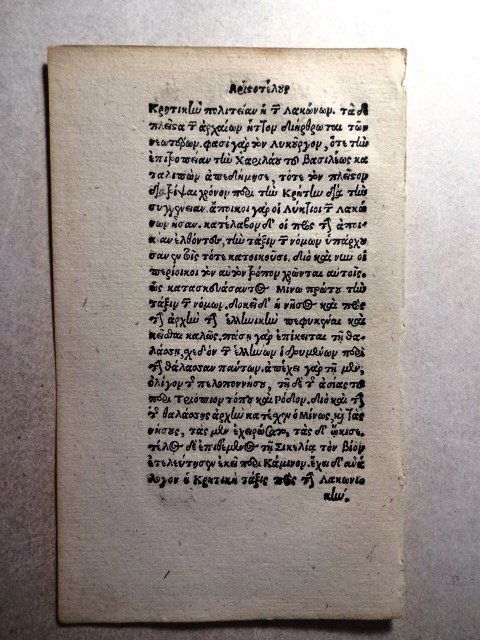 Αριστοτέλους
Κρητικὴν πολιτείαν ἡ τῶν Λακώνων. τὰ δὲ
πλεῖστα τῶν ἀρχαίων ἧττον διήρθρωται τῶν
νεωτέρων. φασὶ γὰρ τὸν Λυκοῦργον, ὅτε τὴν
ἐπιτροπείαν τὴν Χαρίλου τοῦ βασιλέως κα
ταλιπὼν ἀπεδήμησε, τότε τὸν πλεῖστον
διατρίψαι χρόνον περὶ τὴν Κρήτην διὰ τὴν
συγγένειαν. ἄποικοι γὰρ οἱ Λύκτιοι τῶν Λακώ
νων ἦσαν. κατέλαβον δ' οἱ πρὸς τὴν ἀποι
κίαν ἐλθόντες, τὴν τάξιν τῶν νόμων ὑπάρχου
σαν ἐν τοῖς τότε κατοικοῦσι. διὸ καὶ νῦν οἱ
περίοικοι τὸν αὐτὸν τρόπον χρῶνται αὐτοῖς.
ὡς κατασκευάσαντος Μίνω πρώτου τὴν
τάξιν τῶν νόμων. δοκεῖ δ' ἡ νῆσος καὶ πρὸς
τὴν ἀρχὴν τὴν ἑλληνικὴν πεφυκέναι καὶ
κεῖσθαι καλῶς. πάσῃ γὰρ ἐπίκειται τῇ θα
λάσσῃ, σχεδὸν τῶν ἑλλήνων ἱδρυμένων περὶ
τὴν θάλασσαν πάντων. ἀπέχει γὰρ τῇ μὲν,
ὀλίγον τῆς πελοποννήσου, τῇ δὲ τῆς ἀσίας τοῦ
περὶ Τριόπιον τόπου καὶ Ρόδου. διὸ καὶ τὴν
τῆς θαλάσσης ἀρχὴν κατέσχεν ὁ Μίνως, καὶ τὰς
νήσους, τὰς μὲν ἐχειρώσατο, τὰς δ' ᾤκισε.
τέλος δὲ ἐπιθέμενος τῇ Σικελίᾳ τὸν βίον
ἐτελεύτησεν ἐκεῖ περὶ Κάμινον. ἔχει δ' ἀνά
λογον ἡ Κρητικὴ τάξις πρὸς τὴν Λακωνι
κήν.